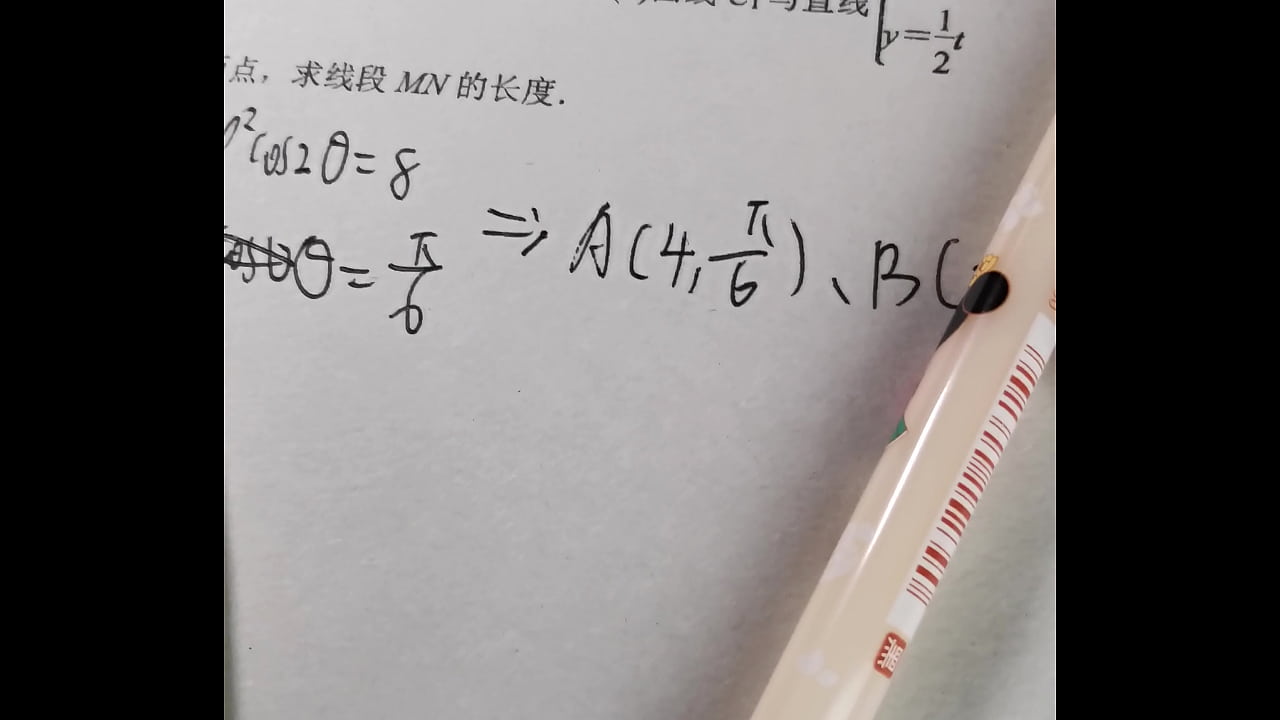 C₁与直线
y=1/2t
点，求线段 MN 的长度.
ρ²cos2θ=8
θ=π/6 ⇒ A(4,π/6)、B(